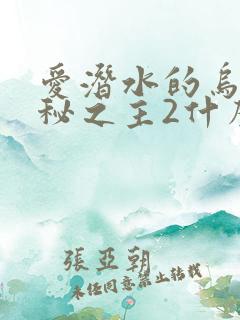 爱潜水的乌
秘之主2什么
張亞朝
未經同意禁止轉載